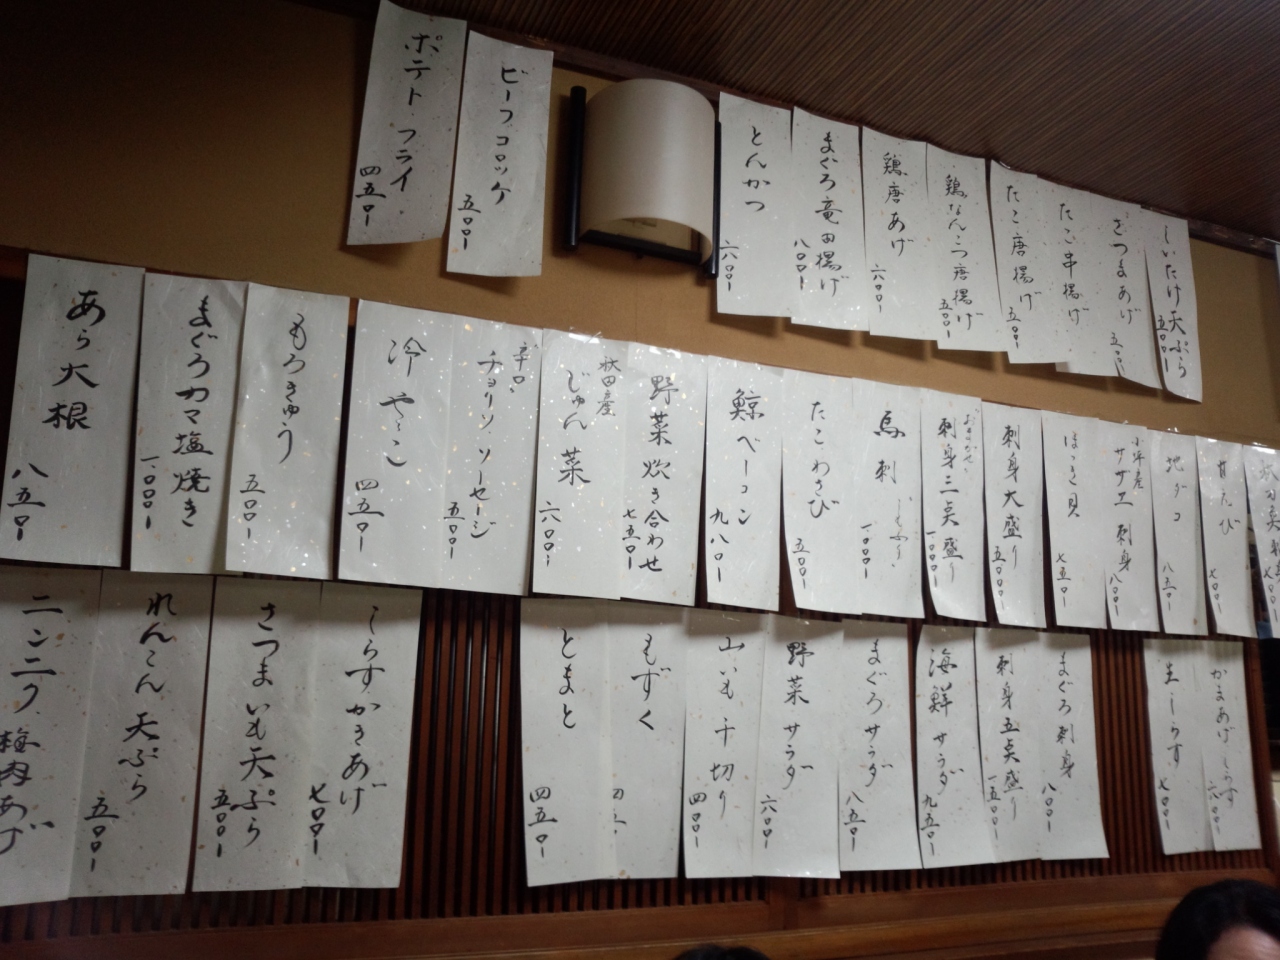 しいたけ天ぷら
五〇〇ー
さつまあげ
たこ串揚げ
たこ唐揚げ
五〇〇ー
鶏なんこつ唐揚げ
五〇〇ー
鶏唐あげ
六〇〇ー
まぐろ竜田揚げ
八〇〇ー
とんかつ
六〇〇ー
ビーフコロッケ
五〇〇ー
ポテトフライ
四五〇ー
甘えび
七〇〇ー
地ダコ
八五〇ー
サザエ刺身
八〇〇ー
ほっき貝
七五〇ー
刺身大盛り
五〇〇〇ー
おまかせ
刺身三点盛り
一、〇〇〇ー
馬刺
一、〇〇〇ー
たこわさび
五〇〇ー
鯨ベーコン
九八〇ー
野菜炊き合わせ
七五〇ー
秋田産
じゅん菜
六〇〇ー
辛口
チョリソーセージ
五〇〇ー
冷やっこ
四五〇ー
もろきゅう
五〇〇ー
まぐろカマ塩焼き
一、〇〇〇ー
あら大根
八五〇ー
かまあげしらす
六〇〇ー
生しらす
七〇〇ー
まぐろ刺身
八〇〇ー
刺身五点盛り
一五〇〇ー
海鮮サラダ
九五〇ー
まぐろサラダ
八五〇ー
野菜サラダ
六〇〇ー
山いも千切り
四〇〇ー
もずく
とまと
四五〇ー
しらすかきあげ
七〇〇ー
さつまいも天ぷら
五〇〇ー
れんこん天ぷら
五〇〇ー
ニンニク梅肉あげ